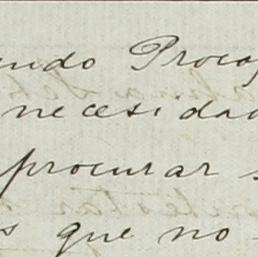 endo Procop
necesidad
procurar s
s que no